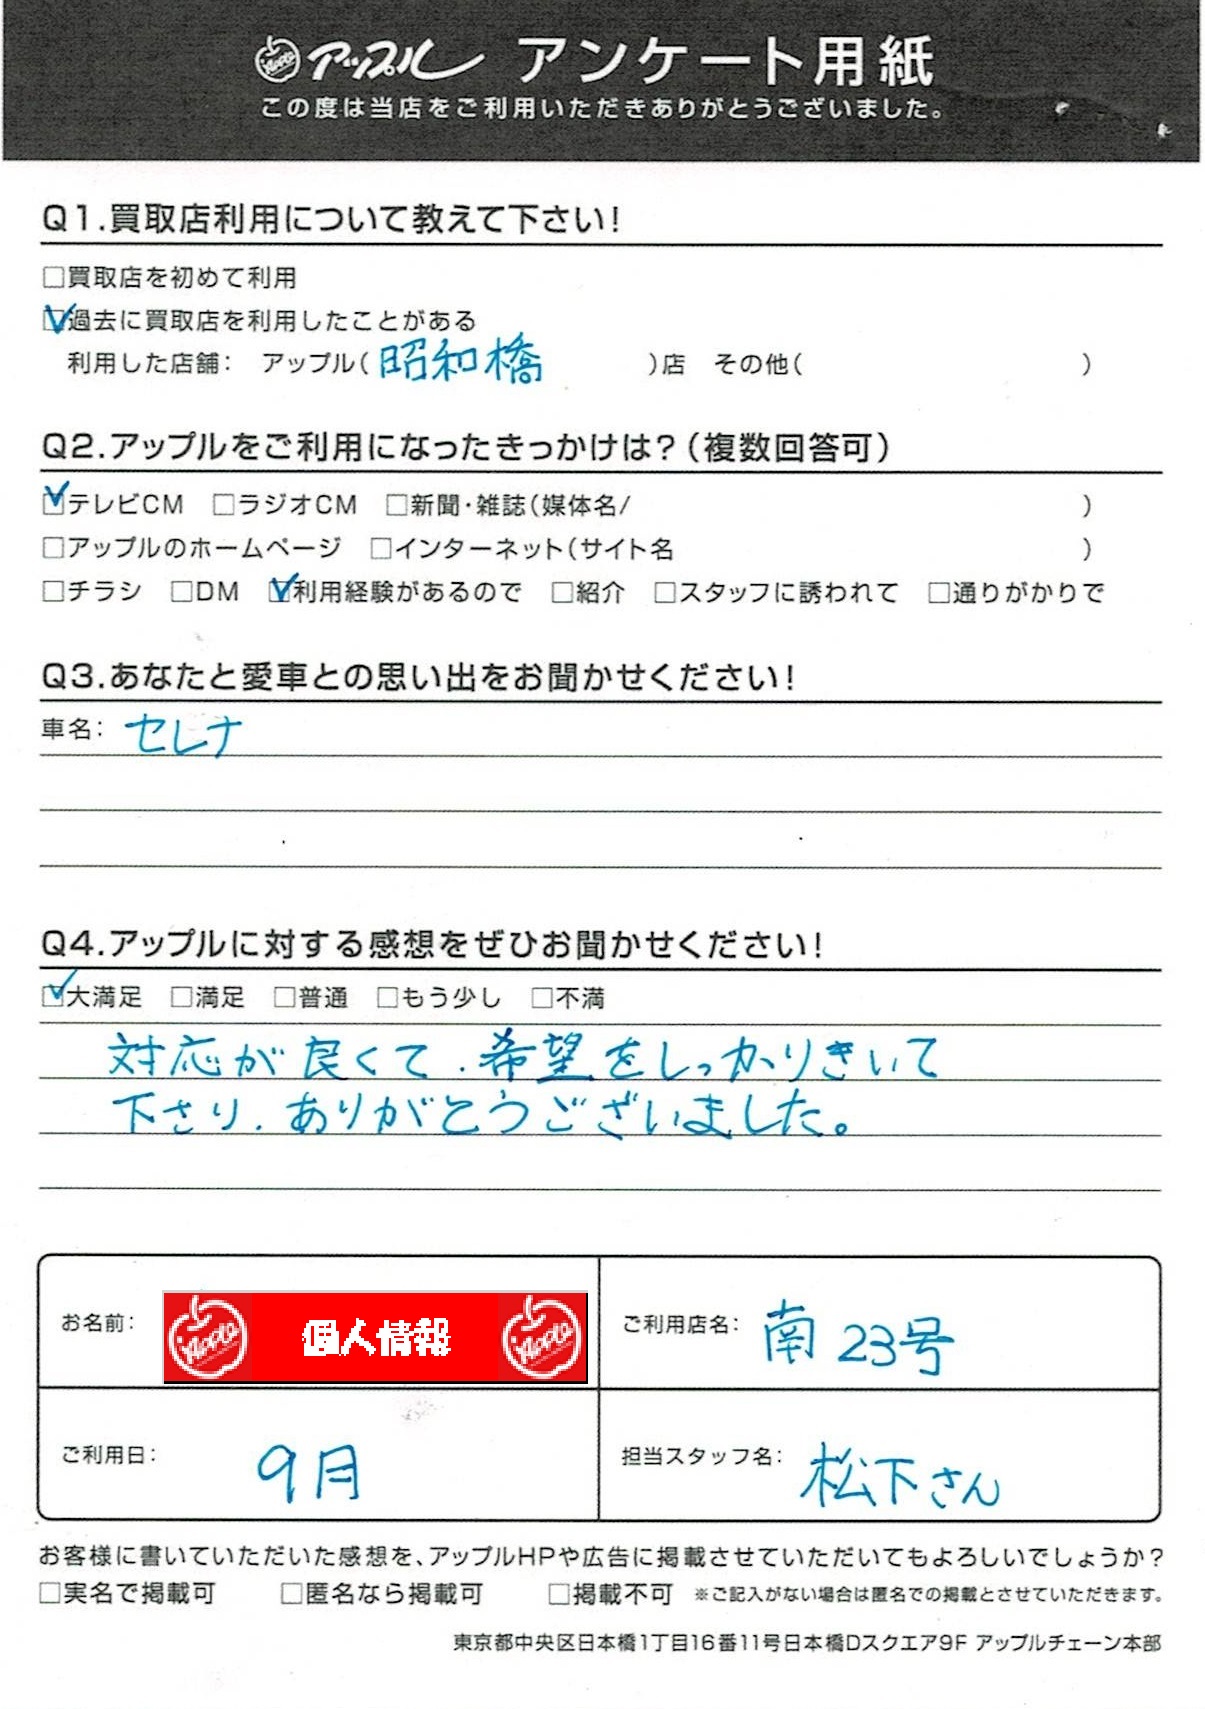 アップル アンケート用紙
この度は当店をご利用いただきありがとうございました。
Q1.買取店利用について教えて下さい!
□買取店を初めて利用
☑過去に買取店を利用したことがある
利用した店舗: アップル(昭和橋)店 その他( )
Q2.アップルをご利用になったきっかけは?(複数回答可)
☑テレビCM □ラジオCM □新聞・雑誌(媒体名/ )
□アップルのホームページ □インターネット(サイト名 )
□チラシ □DM ☑利用経験があるので □紹介 □スタッフに誘われて □通りがかりで
Q3.あなたと愛車との思い出をお聞かせください!
車名: セレナ
Q4.アップルに対する感想をぜひお聞かせください!
☑大満足 □満足 □普通 □もう少し □不満
対応が良くて、希望をしっかりきいて
下さり、ありがとうございました。
お名前: Apple 個人情報 Apple
ご利用店名: 南23号
ご利用日: 9月
担当スタッフ名: 松下さん
お客様に書いていただいた感想を、アップルHPや広告に掲載させていただいてもよろしいでしょうか?
□実名で掲載可 □匿名なら掲載可 □掲載不可 ※ご記入がない場合は匿名での掲載とさせていただきます。
東京都中央区日本橋1丁目16番11号日本橋Dスクエア9F アップルチェーン本部